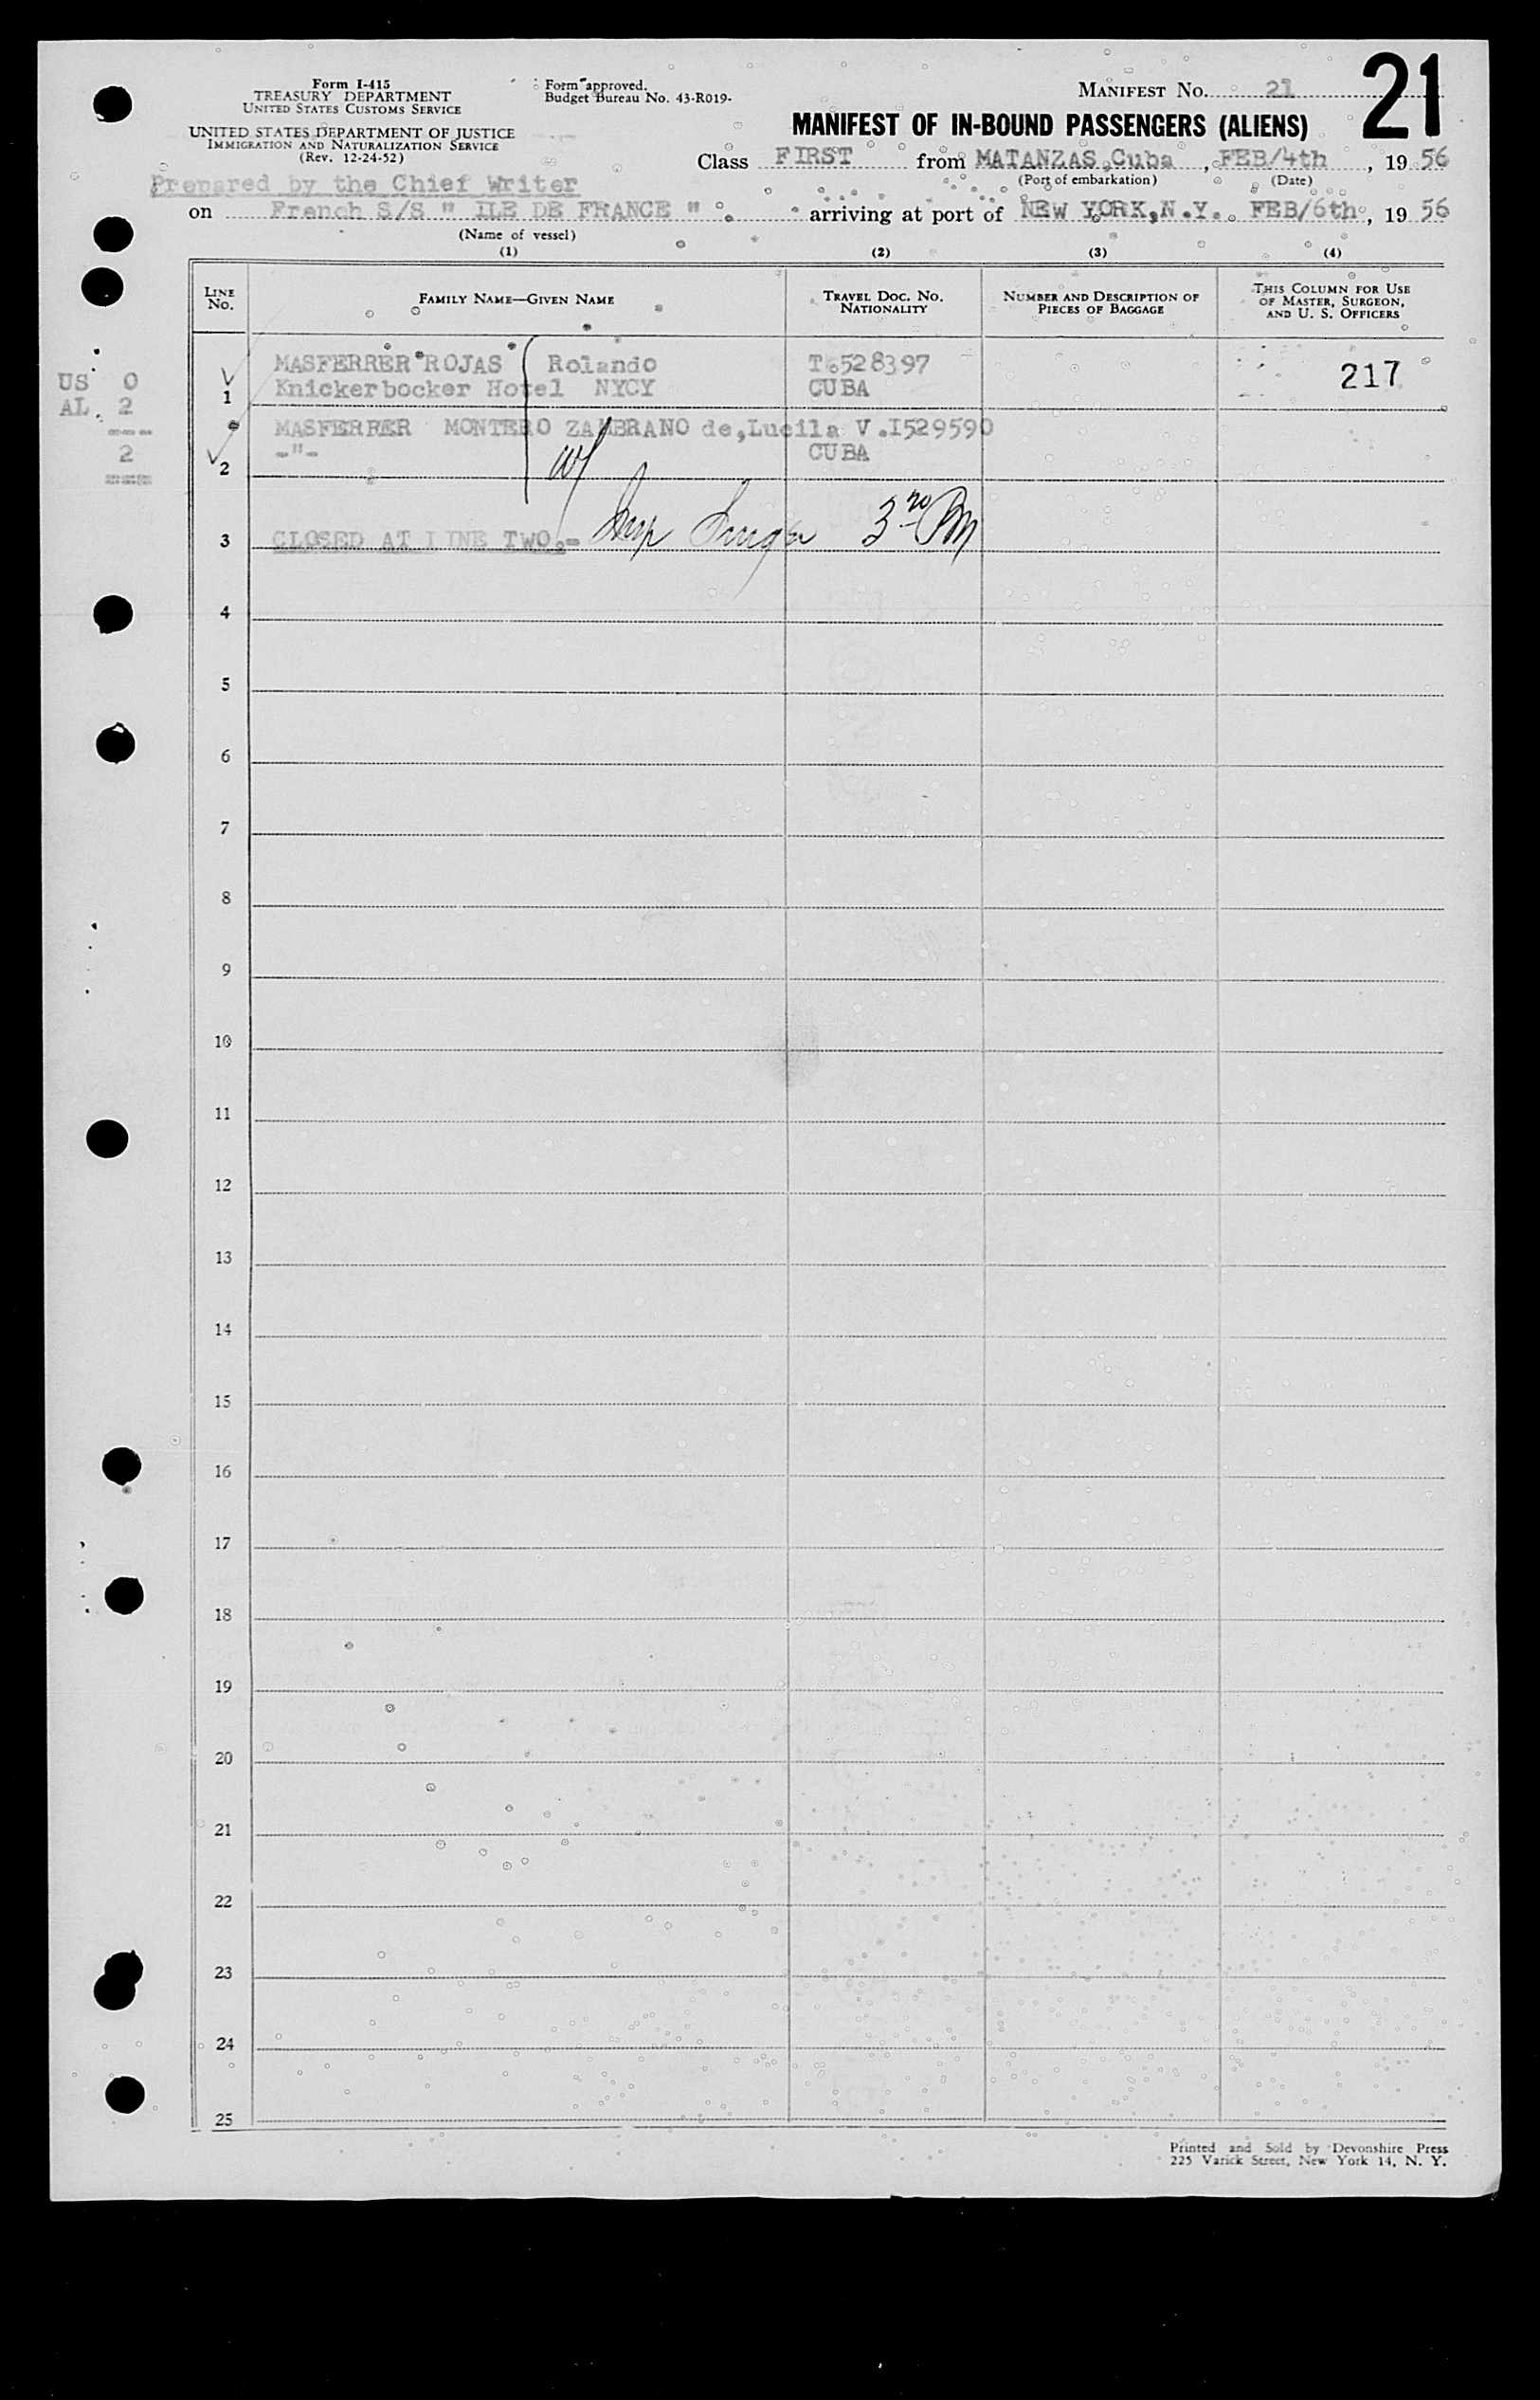 Form I-415
TREASURY DEPARTMENT
UNITED STATES CUSTOMS SERVICE
UNITED STATES DEPARTMENT OF JUSTICE
IMMIGRATION AND NATURALIZATION SERVICE
(Rev. 12-24-52)
Form approved.
Budget Bureau No. 43-R019-
MANIFEST NO. 21
21
MANIFEST OF IN-BOUND PASSENGERS (ALIENS)
Class FIRST from MATANZAS,Cuba , FEB/4th , 19 56
(Port of embarkation) (Date)
Prepared by the Chief Writer
on French S/S " ILE DE FRANCE " . arriving at port of NEW YORK,N.Y. FEB/6th , 19 56
(Name of vessel)
(1) (2) (3) (4)
LINE NO.
FAMILY NAME—GIVEN NAME
TRAVEL DOC. NO.
NATIONALITY
NUMBER AND DESCRIPTION OF
PIECES OF BAGGAGE
THIS COLUMN FOR USE
OF MASTER, SURGEON,
AND U. S. OFFICERS
US 0
AL. 2
2
MASFERRER ROJAS Rolando 528397 217
1 Knickerbocker Hotel NYCY CUBA
MASFERRER MONTERO ZAMBRANO de,Lucila V.I529590
2 -"- CUBA
3 CLOSED AT LINE TWO.- 3 PM
4
5
6
7
8
9
10
11
12
13
14
15
16
17
18
19
20
21
22
23
24
25
Printed and Sold by Devonshire Press
225 Varick Street, New York 14, N. Y.